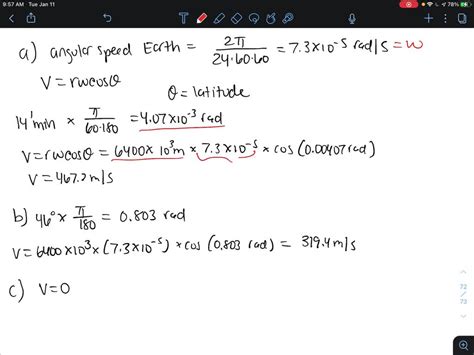 9:57 AM Tue Jan 11
78%
a) angular speed Earth = 2π / 24·60·60 = 7.3×10⁻⁵ rad/s = ω
V = rωcosθ
θ = latitude
14' min × π / 60·180 = 4.07×10⁻³ rad
V = rωcosθ = 6400×10³m × 7.3×10⁻⁵ × cos(0.00407rad)
V = 467.2 m/s
b) 46° × π / 180 = 0.803 rad
V = 6400×10³ × (7.3×10⁻⁵) × cos(0.803 rad) = 319.4 m/s
c) V=0
72
73